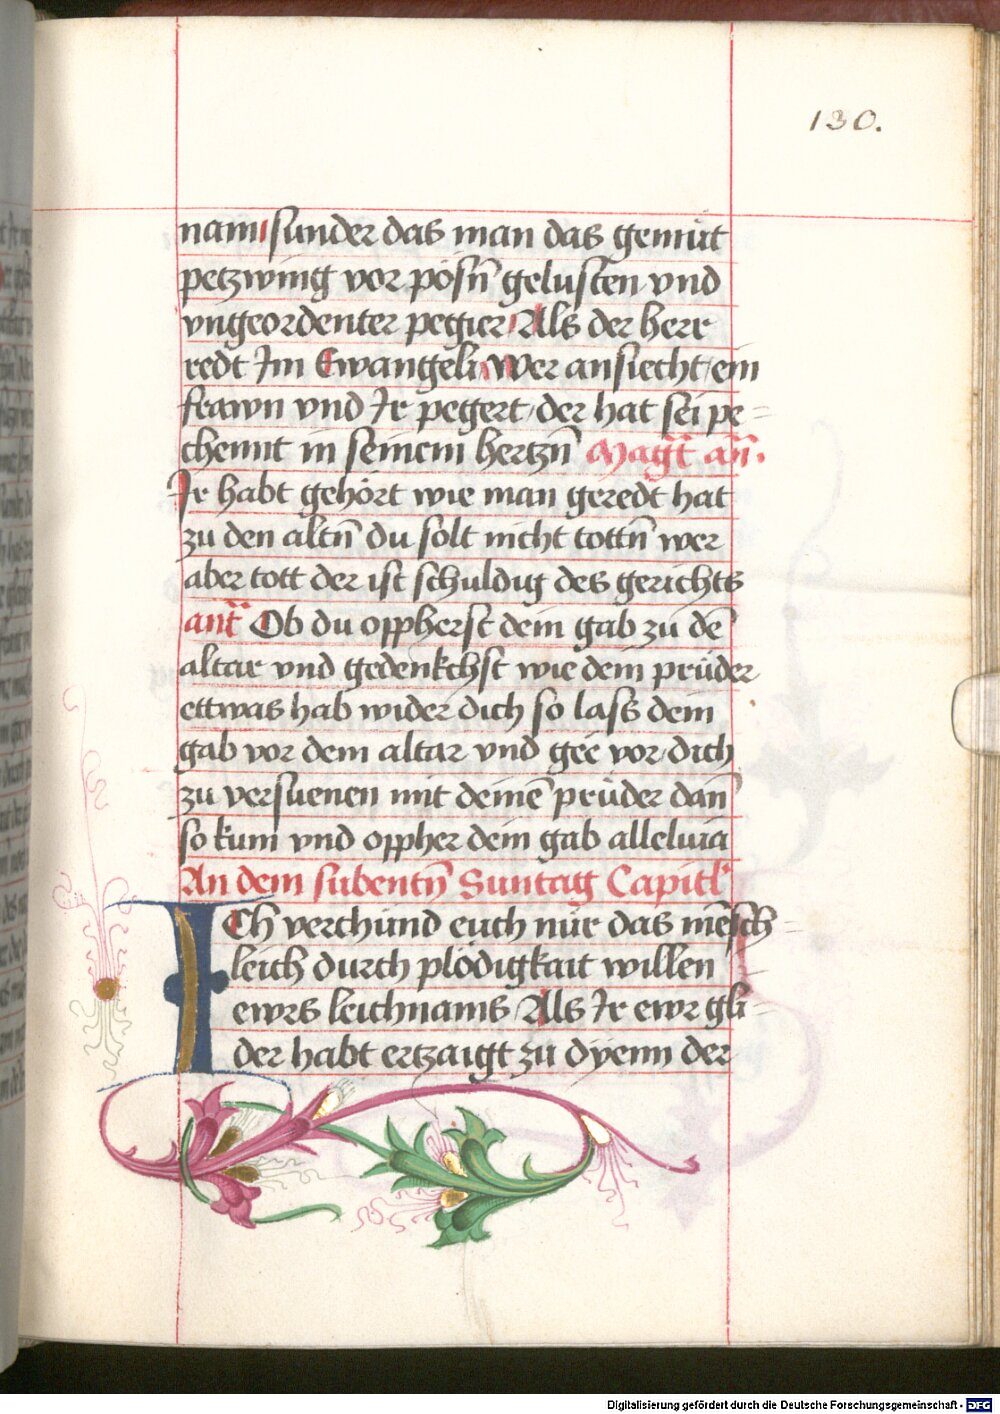 130.
nam sunder das man das gemüt
petzwing vor pösn̄ gelusten vnd
vngeordenter pegier Als der herr
redt Im Ewangeli, Wer ansiecht ein
frawn vnd Ir pegert, der hat sei pe=
chennt in seinem hertzn̄ Magt̄ an̄.
Ir habt gehört wie man geredt hat
zu den altn̄ du solt nicht tottn̄ wer
aber tott der ist schuldig des gerichts
ant̄ Ob du oppherst dein gab zu dē
altar vnd gedenkchst wie dein prüder
ettwas hab wider dich so lass dein
gab vor dem altar vnd gee vor dich
zu versuenen mit deinē prüder dan̄
so kum vnd oppher dein gab alleluia
An dem sübentn̄ Suntag Capitl'
ICh verchünd euch nür das mēsch=
leich durch plödigkait willen
ewrs leichnams Als Ir ewr gli=
der habt ertzaigt zu dyenn der
Digitalisierung gefördert durch die Deutsche Forschungsgemeinschaft - DFG